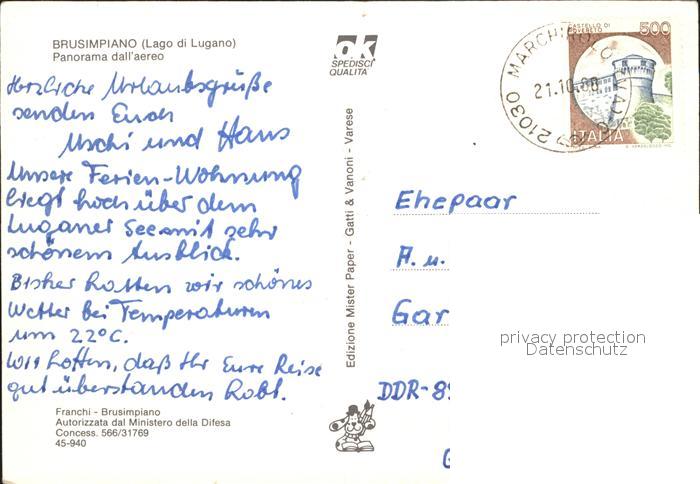 BRUSIMPIANO (Lago di Lugano)
Panorama dall'aereo
Herzliche Urlaubsgrüße
senden Euch
Uschi und Hans
Unsere Ferien-Wohnung
liegt hoch über dem
Luganer See mit sehr
schönem Ausblick.
Bisher hatten wir schönes
Wetter bei Temperaturen
um 22°C.
Wir hoffen, daß Ihr Eure Reise
gut überstanden habt.
Franchi - Brusimpiano
Autorizzata dal Ministero della Difesa
Concess. 566/31769
45-940
ok
SPEDISCI
QUALITA'
Edizione Mister Paper - Gatti & Vanoni - Varese
21030 MARCHIROLO (VA)
21.10.88
CASTELLO DI
ROVERETO
500
ITALIA
Ehepaar
A. u.
Gar
privacy protection
Datenschutz
DDR-89
G